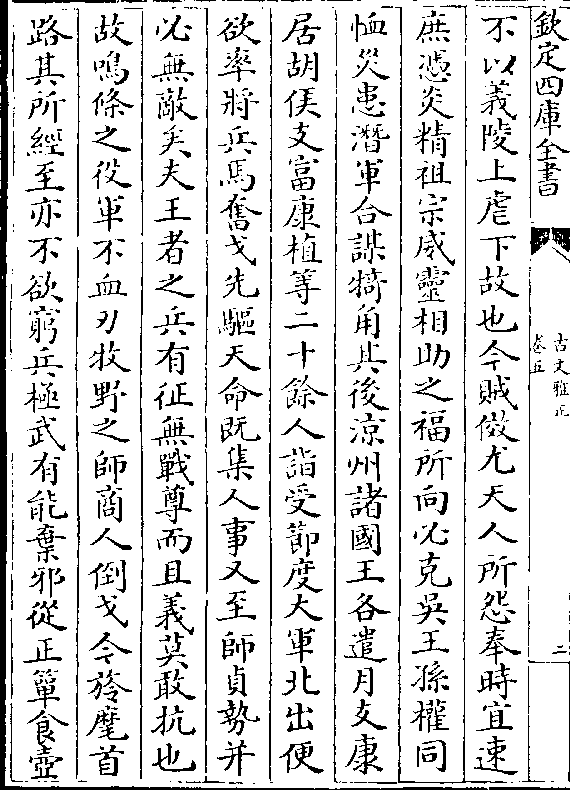 欽定四庫全書
古文雅正
卷五
二
不以義陵上虐下故也今賊傚尤天人所怨奉時宜速
庶憑炎精祖宗威靈相助之福所向必克吳王孫權同
恤災患潛軍合謀犄角其後涼州諸國王各遣月支康
居胡侯支富康植等二十餘人詣受節度大軍北出便
欲率將兵馬奮戈先驅天命既集人事又至師貞勢并
必無敵矣夫王者之兵有征無戰尊而且義莫敢抗也
故鳴條之役軍不血刃牧野之師商人倒戈今旍麾首
路其所經至亦不欲窮兵極武有能棄邪從正簞食壺